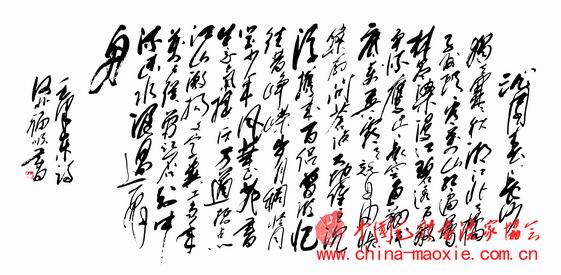 沁园春 长沙
独立寒秋湘江北去橘
子洲头看万山红遍层
林尽染漫江碧透百舸
争流鹰击长空鱼翔浅
底万类霜天竞自由怅
寥廓问苍茫大地谁主沉
浮携来百侣曾游忆
往昔峥嵘岁月稠恰同
学少年风华正茂书
生意气挥斥方遒指点
江山激扬文字粪土当年
万户侯曾记否到中
流击水浪遏飞
舟
毛泽东诗
书
中国毛体书法家协会
www.china-maoxie.com